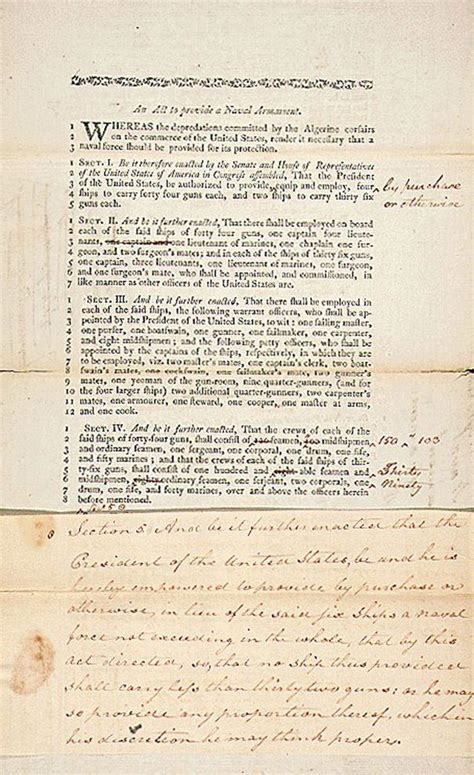 An Act to provide a Naval Armament.
1 WHEREAS the depredations committed by the Algerine corsairs
2 on the commerce of the United States, render it necessary that a
3 naval force should be provided for its protection.
1 SECT. I. Be it therefore enacted by the Senate and House of Representatives
2 of the United States of America in Congress assembled, That the President
3 of the United States, be authorized to provide, equip and employ, four
4 ships to carry forty four guns each, and two ships to carry thirty six
5 guns each.
by purchase
or otherwise
1 SECT. II. And be it further enacted, That there shall be employed on board
2 each of the said ships of forty four guns, one captain four lieute-
3 nants, one captain and one lieutenant of marines, one chaplain one sur-
4 geon, and two surgeon's mates; and in each of the ships of thirty six guns,
5 one captain, three lieutenants, one lieutenant of marines, one surgeon,
6 and one surgeon's mate, who shall be appointed, and commissioned, in
7 like manner as other officers of the United States are.
1 SECT. III. And be it further enacted, That there shall be employed, in
2 each of the said ships, the following warrant officers, who shall be ap-
3 pointed by the President of the United States, to wit: one sailing master,
4 one purser, one boatswain, one gunner, one sailmaker, one carpenter,
5 and eight midshipmen; and the following petty officers, who shall be
6 appointed by the captains of the ships, respectively, in which they are
7 to be employed, viz. two master's mates, one captain's clerk, two boat-
8 swain's mates, one cockswain, one sailmaker's mate, two gunner's
9 mates, one yeoman of the gun-room, nine quarter-gunners, (and for
10 the four larger ships) two additional quarter-gunners, two carpenter's
11 mates, one armourer, one steward, one cooper, one master at arms,
12 and one cook.
1 SECT. IV. And be it further enacted, That the crews of each of the
2 said ships of forty-four guns, shall consist of seamen, midshipmen
3 and ordinary seamen, one sergeant, one corporal, one drum, one fife,
4 and fifty marines; and that the crews of each of the said ships of thir-
5 ty-six guns, shall consist of one hundred and eight able seamen and
6 midshipmen, eighty ordinary seamen, one serjeant, two corporals, one
7 drum, one fife, and forty marines, over and above the officers herein
8 before mentioned.
150 103
Thirty
Ninety
Section 5. And be it further enacted that the
President of the United States, be and he is
hereby empowered to provide by purchase or
otherwise, in lieu of the said six Ships a naval
force not exceeding in the whole, that by this
act directed, so that no ship thus provided
shall carry less than thirty two guns: or he may
so provide any proportion thereof, which in
his discretion he may think proper.